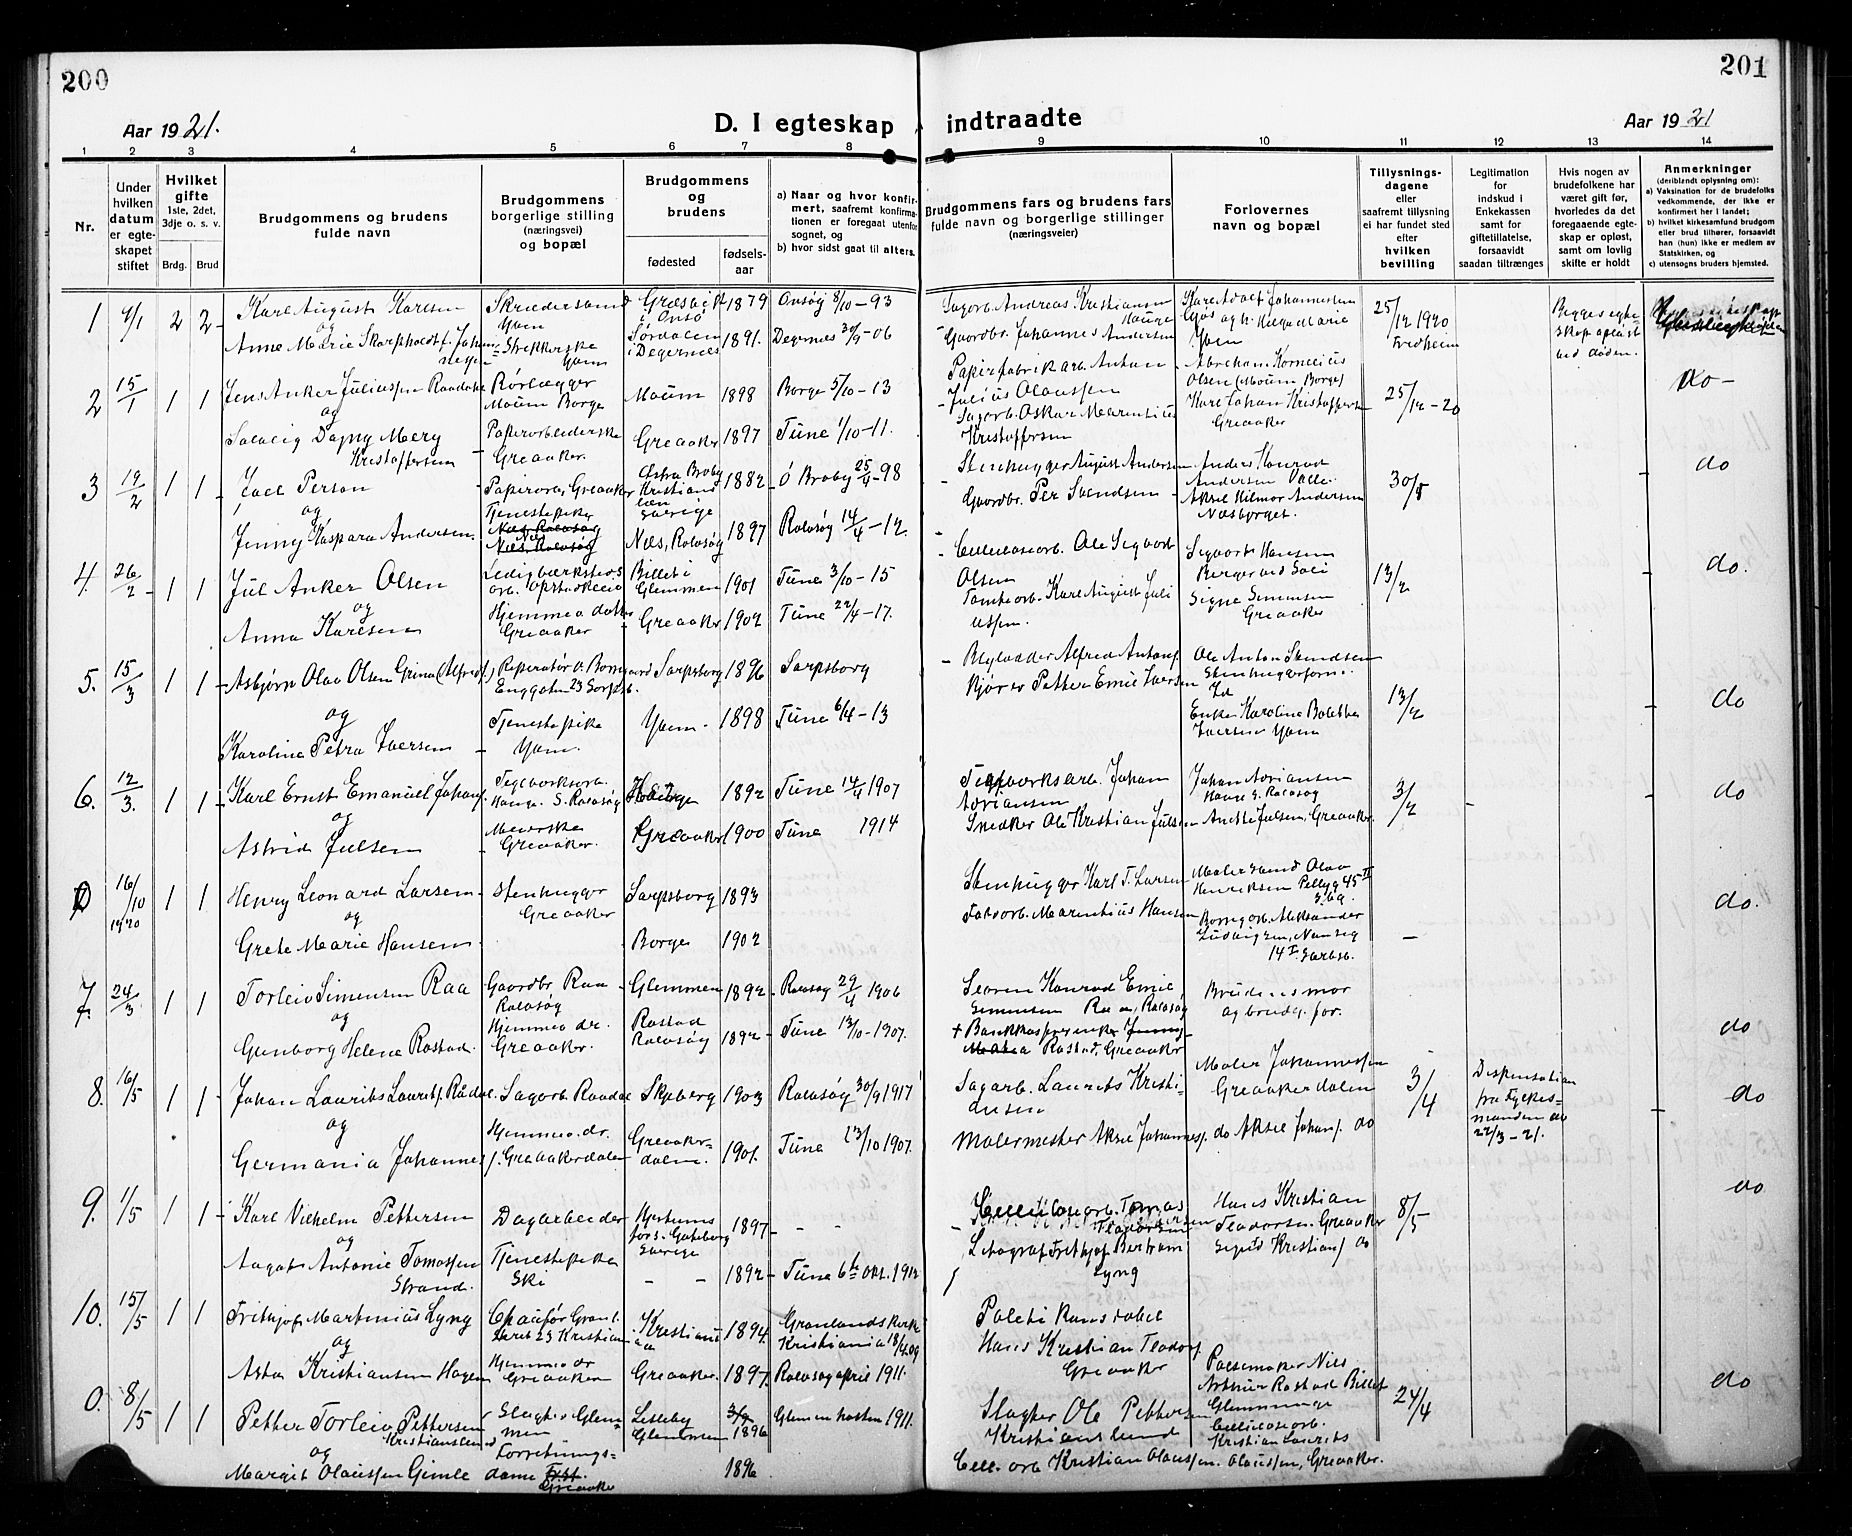 200
201
Aar 1921.
D. I egteskap indtraadte
Aar 1921
1 2 3 4 5 6 7 8 9 10 11 12 13 14
Nr.
Under hvilken datum er egteskapet stiftet
Hvilket gifte
1ste, 2det, 3dje o. s. v.
Brdg. Brud
Brudgommens og brudens fulde navn
Brudgommens borgerlige stilling (næringsvei) og bopæl
Brudgommens og brudens
fødested
fødselsaar
a) Naar og hvor konfirmert, saafremt konfirmationen er foregaat utenfor sognet, og
b) hvor sidst gaat til alters.
Brudgommens fars og brudens fars fulde navn og borgerlige stillinger (næringsveier)
Forlovernes navn og bopæl
Tillysningsdagene eller saafremt tillysning ei har fundet sted efter hvilken bevilling
Legitimation for indskud i Enkekassen samt for giftetillatelse, forsaavidt saadan tiltrænges
Hvis nogen av brudefolkene har været gift før, hvorledes da det foregaaende egteskap er opløst, samt om lovlig skifte er holdt
Anmerkninger
(deriblandt oplysning om):
a) Vaksination for de brudefolks vedkommende, der ikke er konfirmert her i landet;
b) hvilket kirkesamfund brudgom eller brud tilhører, forsaavidt han (hun) ikke er medlem av Statskirken, og
c) utensogns bruders hjemsted.
1 2 2 Karl August Karlsen
og
Anne Marie Skarpholdt f. Johannessen
Skrædersvend
Strekkerske
Græsvik i Onsø 1879 Onsøy 8/10-93
Sørdalen i Degernes 1891. Degernes 30/9-06
Sagarb. Andreas Kristiansen Hauge
Gaardbr. Johannes Andersen
25/12 1920
Fredheim
Begges egteskap opløst ved døden.
2 15/1 1 1 Jens Anker Juliussen Raadahl
og
Solveig Dagny Mery Kristoffersen
Rørlægger Moum Borge
Papirarbeiderske Greaaker.
Moum 1898 Borge 5/10-13
Greaaker 1897 Tune 1/10-11.
Papirfabrikarb. Anton Julius Olaussen
Sagarb. Oskar Marentius Kristoffersen
Abraham Kornelius Olsen (Moum Borge)
Karl Johan Kristoffersen Greaaker
25/12-20
do-
3 19/2 1 1 Joel Person
og
Jenny Kaspara Andersen.
Papirarb. Greaaker
Tjenestepike
Næs, Rolvsøy
Østra Broby Kristianstad län Sverige 1882 Ö Broby 25/4-98
Næs, Rolvsøy 1897 Rolvsøy 14/4-12.
Stenhugger August Andersen
Gaardbr. Per Svendsen
Anders Konrad Andersen Valle.
Aksel Hilmar Andersen Næsbjerget.
do
4. 26/2 1 1 Jul Anker Olsen
og
Anna Karlsen
Ledig værksteds arb. Opstadfeltet
Hjemmev. datter Greaaker
Billet i Glemmen 1901 Tune 3/10-15
Greaaker 1902 Tune 22/4-17.
Cellulosearb. Ole Sigvart Olsen
Tomtearb. Karl August Juliussen.
Sigvart Hansen
Berger ved Soli
Signe Simensen Greaaker
13/2
do.
5. 15/3 1 1 Asbjørn Olav Olsen Grina (Alfreds.)
og
Karoline Petra Iversen
Reparatør v. Borregaard
Enggaten 23 Sarpsb.
Tjenestepike
Sarpsborg 1896 Sarpsborg
1898 Tune 6/4-13
Blylodder Alfred Antons.
Kjører Petter Emil Iversen
Ole Anton Svendsen
Stenhuggerform.
Enke Karoline Bolette Iversen
13/2
do
6. 12/3. 1 1 Karl Ernst Emanuel Johans.
og
Astrid Julsen
Teglverksarb. Hauge S. Rolvsøy
Meierske Greaaker.
Hauge 1892 Tune 14/4 1907
Greaaker 1900 Tune 1914
Teglverksarb. Johan Adriansen
Snedker Ole Kristian Julsen
Johan Adriansen Hauge S. Rolvsøy
Anette Julsen, Greaaker.
3/2
do
0 16/10 1920 1 1 Henry Leonard Larsen
og
Grete Marie Hansen
Stenhugger Greaaker
Sarpsborg 1893
Borge 1902
Stenhugger Karl T. Larsen
Fabarb. Marentius Hansen
Malersvend Olav Henriksen Pellyg 45 II S.bg.
Borregarb. Aleksander Ludvigsen, Nanseg 14 I Sarpsb.
do.
7. 24/3 1 1 Torleiv Simensen Raa
og
Gunborg Helene Rostad.
Gaardbr Raa Rolvsøy
Hjemmev. dr. Greaaker.
Glemmen 1892 Rolvsøy 29/4 1906
Rostad Rolvsøy 1892 Tune 13/10-1907.
Søren Konrad Emil Simensen Raa, Rolvsøy
Rostad, Greaaker
Brudens mor og brudg. far.
do
8. 16/5 1 1 Johan Laurits Laurits. Rådal
og
Germania Johannes
Sagarb. Raadal
Hjemmev. dr. Greaakerdalen
Skjeberg 1903 Rolvsøy 30/9 1917
Greaakerdalen. 1901. Tune 13/10 1907.
Sagarb. Laurits Kristiansen
Malermester Aksel Johanness.
Maler Johannessen Greaakerdalen
do Aksel Johans. do
3/4
Dispensation fra Fylkesmanden av 22/3-21.
do
9. 1/5 1 1 Karl Vilhelm Pettersen
og
Aagot Antonie Tomassen Strand.
Dagarbeider
Tjenestepike Ski
Göteborg Sverige 1897
1892 Tune 6te okt. 1912
Cellulosearb. Tomas
Litograf Frithjof Bertram Lyng
Hans Kristian Teodorsen. Greaaker
Sigurd Kristians. do
8/5
do
10. 15/5 1 1 Frithjof Martinius Lyng
og
Asta Kristiansen Hagen
Chauffør
23 Kristiania
Hjemmev dr Greaaker
Kristiania 1894. Grønlands kirke Kristiania 18/4.09
Greaaker. 1897. Rolvsøy april 1911.
Hans Kristian Teodor Greaaker
0. 8/5 1 1 Petter Torleiv Pettersen Kristianslund
og
Margit Olaussen Gimle
Slagter Glemmen
Forretningsdame Greaaker
Lisleby Glemmen 1896 Glemmen høsten 1911.
1896
Slagter Ole Pettersen Kristianslund
Cell. arb Kristian Olaussen.
Pølsemaker Nils Arthur Rostad Billet Glemminge
Cellulosearb. Kristian Laurits Olaussen, Greaaker.
24/4
do